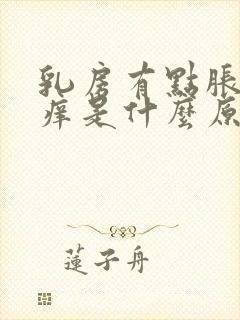 乳房有點脹
痒是什麼原
蓮子舟